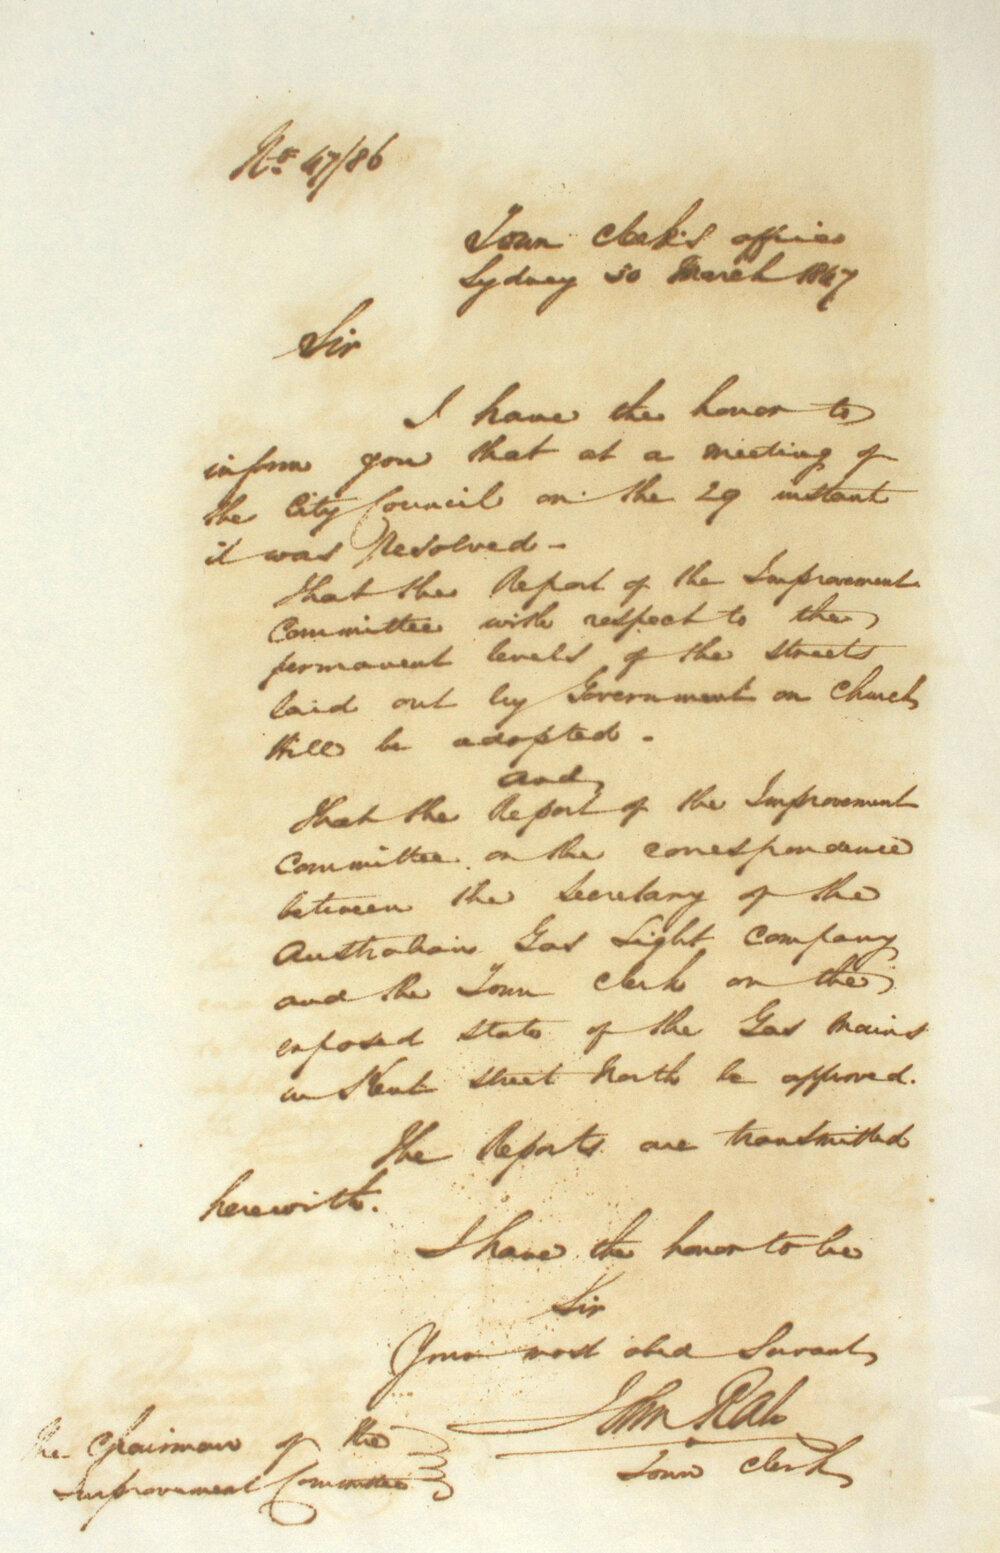 No. 47/86
Town Clerk's office
Sydney 30 March 1847
Sir
I have the honor to
inform you that at a meeting of
the City Council on the 29 instant
it was Resolved -
That the Report of the Improvement
Committee with respect to the
permanent levels of the streets
laid out by Government on Church
Hill be adopted -
and
That the Report of the Improvement
Committee on the correspondence
between the Secretary of the
Australian Gas Light Company
and the Town Clerk on the
exposed state of the Gas Mains
in Kent Street North be approved.
The Reports are transmitted
herewith.
I have the honor to be
Sir
Your most obed Servant
John Rae
Town Clerk
The Chairman of the
Improvement Committee